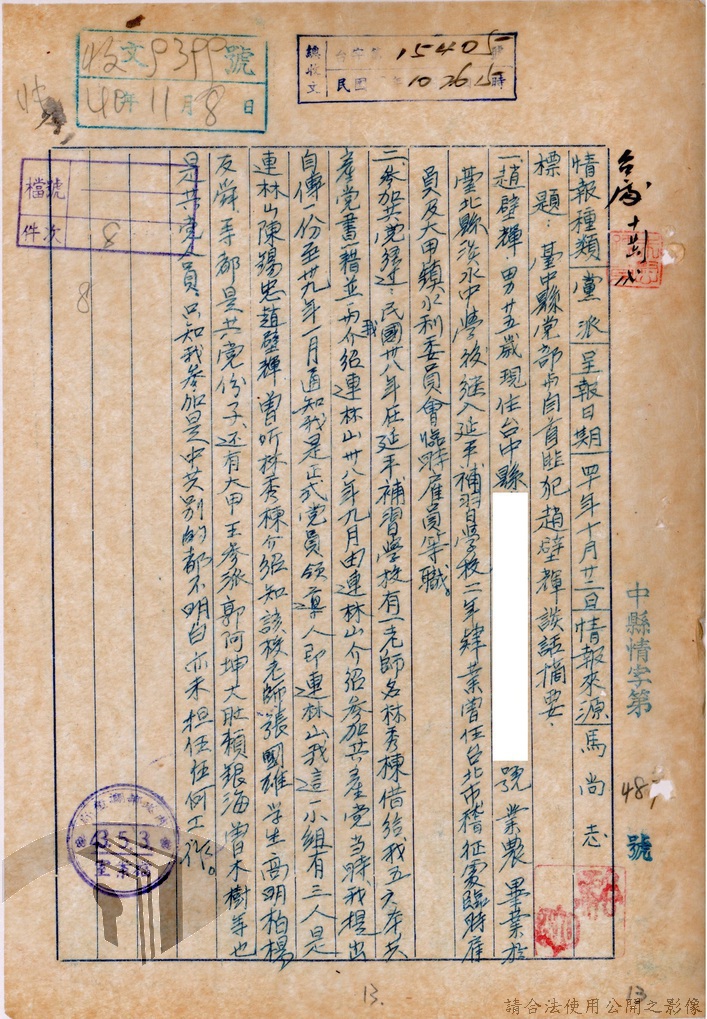 收文9399號
40年11月8日
總收文 台字第15405號
民國 年10 26 15時
檔號
件次 8
8
中縣情字第 48 號
情報種類 黨派 呈報日期 四十年十月廿三日 情報來源 馬尚志
標題：臺中縣党部与自首匪犯趙壁輝談話摘要．
一、趙壁輝 男廿五歲現住台中縣 號 業農 畢業於
臺北縣淡水中學後继入延平補習學校二年肄業曾任台北市稽征處臨時雇
員及大甲鎮水利委員會臨時雇員等職。
二、參加共党経过 民國卅八年在延平補習學校有一老師名林秀棟借给我五六本共
產党書籍並为我介绍連林山卅八年九月由連林山介绍參加共產党当時我提出
自傳一份至卅九年一月通知我是正式党員領導人即連林山我這一小組有三人是
連林山陳錫忠趙壁輝曾听林秀棟介绍知該校老師張國雄学生高明柏楊
反舜等都是共党份子、还有大甲王參派郭阿坤大肚賴銀海曾木樹等也
是共党人員、只知我參加是中共別的都不明白亦未担任任何工作。
43.5.3
檔案室
13.
13
請合法使用公開之影像